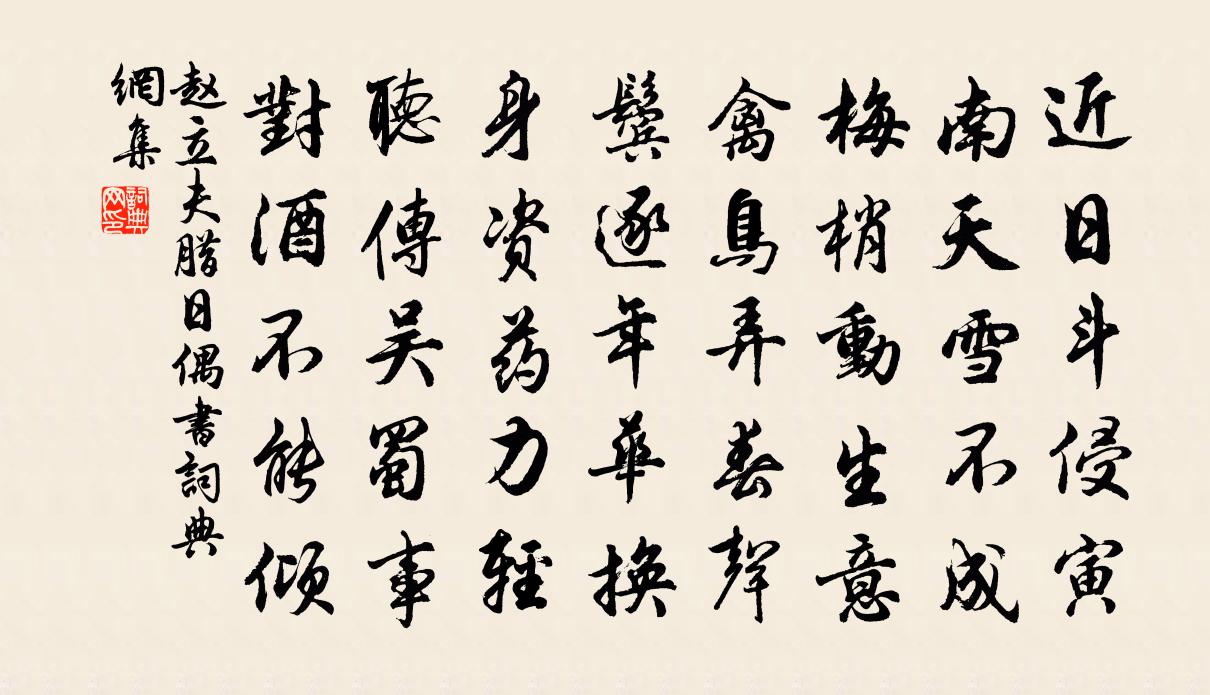 近日斗侵寅
南天雪不成
梅梢動生意
禽鳥弄春聲
鬢逐年華換
身资药力輕
聽傳吴蜀事
對酒不能傾
赵立夫腊日偶書詞典
網集
詞典
网印